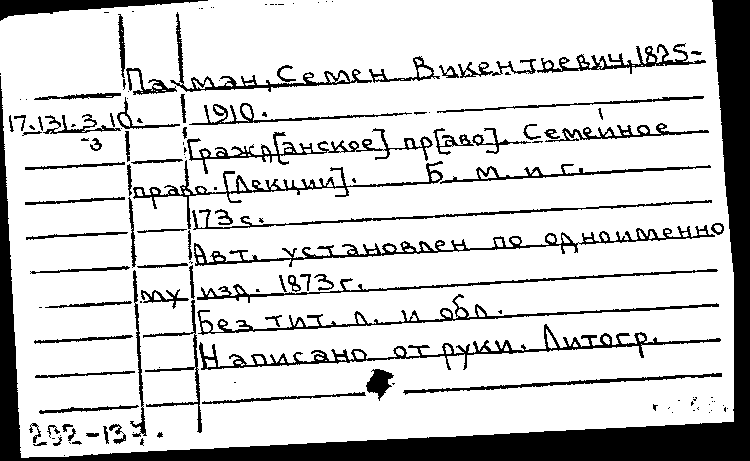 Пахман, Семен Викентьевич, 1825-
17.131.3.10. 1910.
-3
Гражд[анское] пр[аво]. Семейное
право. [Лекции]. Б. м. и г.
173 с.
Авт. установлен по одноименно
му изд. 1873 г.
Без тит. л. и обл.
Написано от руки. Литогр.